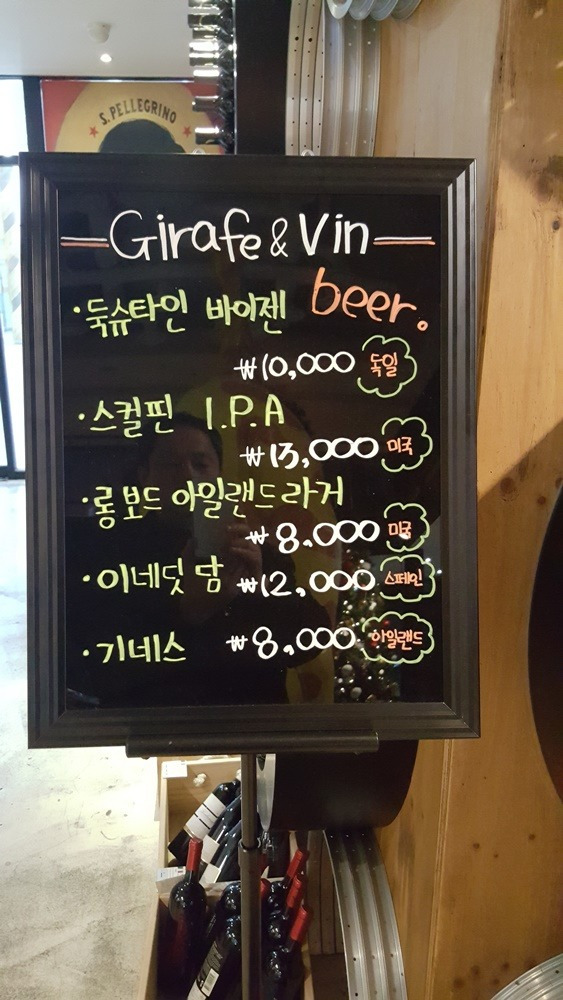 S. PELLEGRINO
Girafe & Vin
beer.
· 둑슈타인 바이젠
₩10,000 독일
· 스컬핀 I.P.A
₩13,000 미국
· 롱보드 아일랜드 라거
₩8.000 미국
· 이네딧 담 ₩12,000 스페인
· 기네스 ₩8,000 아일랜드